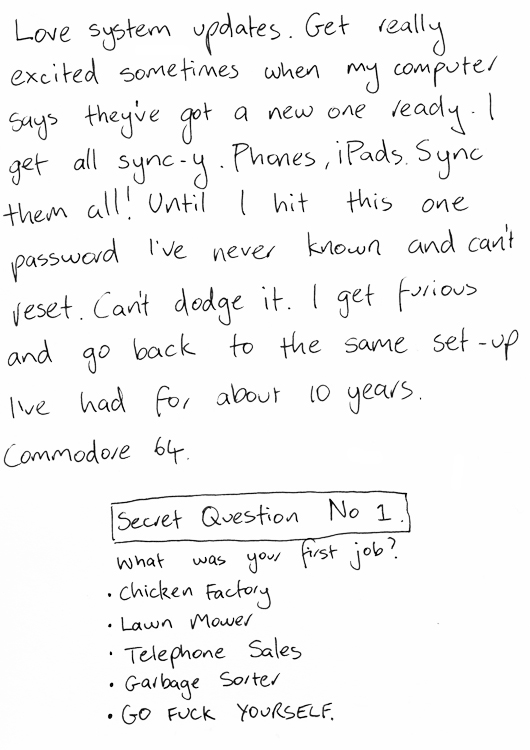 Love system updates. Get really
excited sometimes when my computer
says they've got a new one ready. I
get all sync-y. Phones, iPads. Sync
them all! Until I hit this one
password I've never known and can't
reset. Can't dodge it. I get furious
and go back to the same set-up
I've had for about 10 years.
Commodore 64.
Secret Question No 1.
What was your first job?
• Chicken Factory
• Lawn Mower
• Telephone Sales
• Garbage Sorter
• GO FUCK YOURSELF.